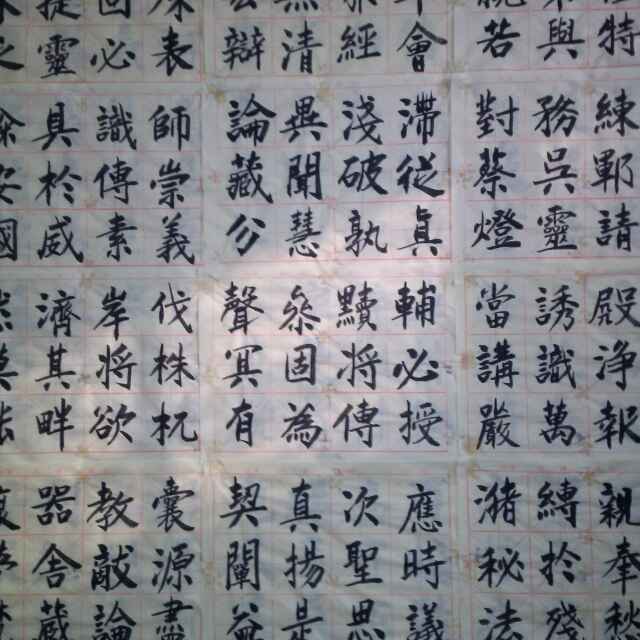 特練郢請殿淨報親奉
興務吳靈誘識萬縛於殘
若對燈當講嚴潴秘法
會滯從真輔必授應時議
經淺破執贖將傳次聖思
清異聞慧叅固為真揚是
辯論藏分聲冥有契闡益
表師崇義伐株杌囊源盡
必識傳素岸將欲教敲論
靈具於威濟其畔器舍藏